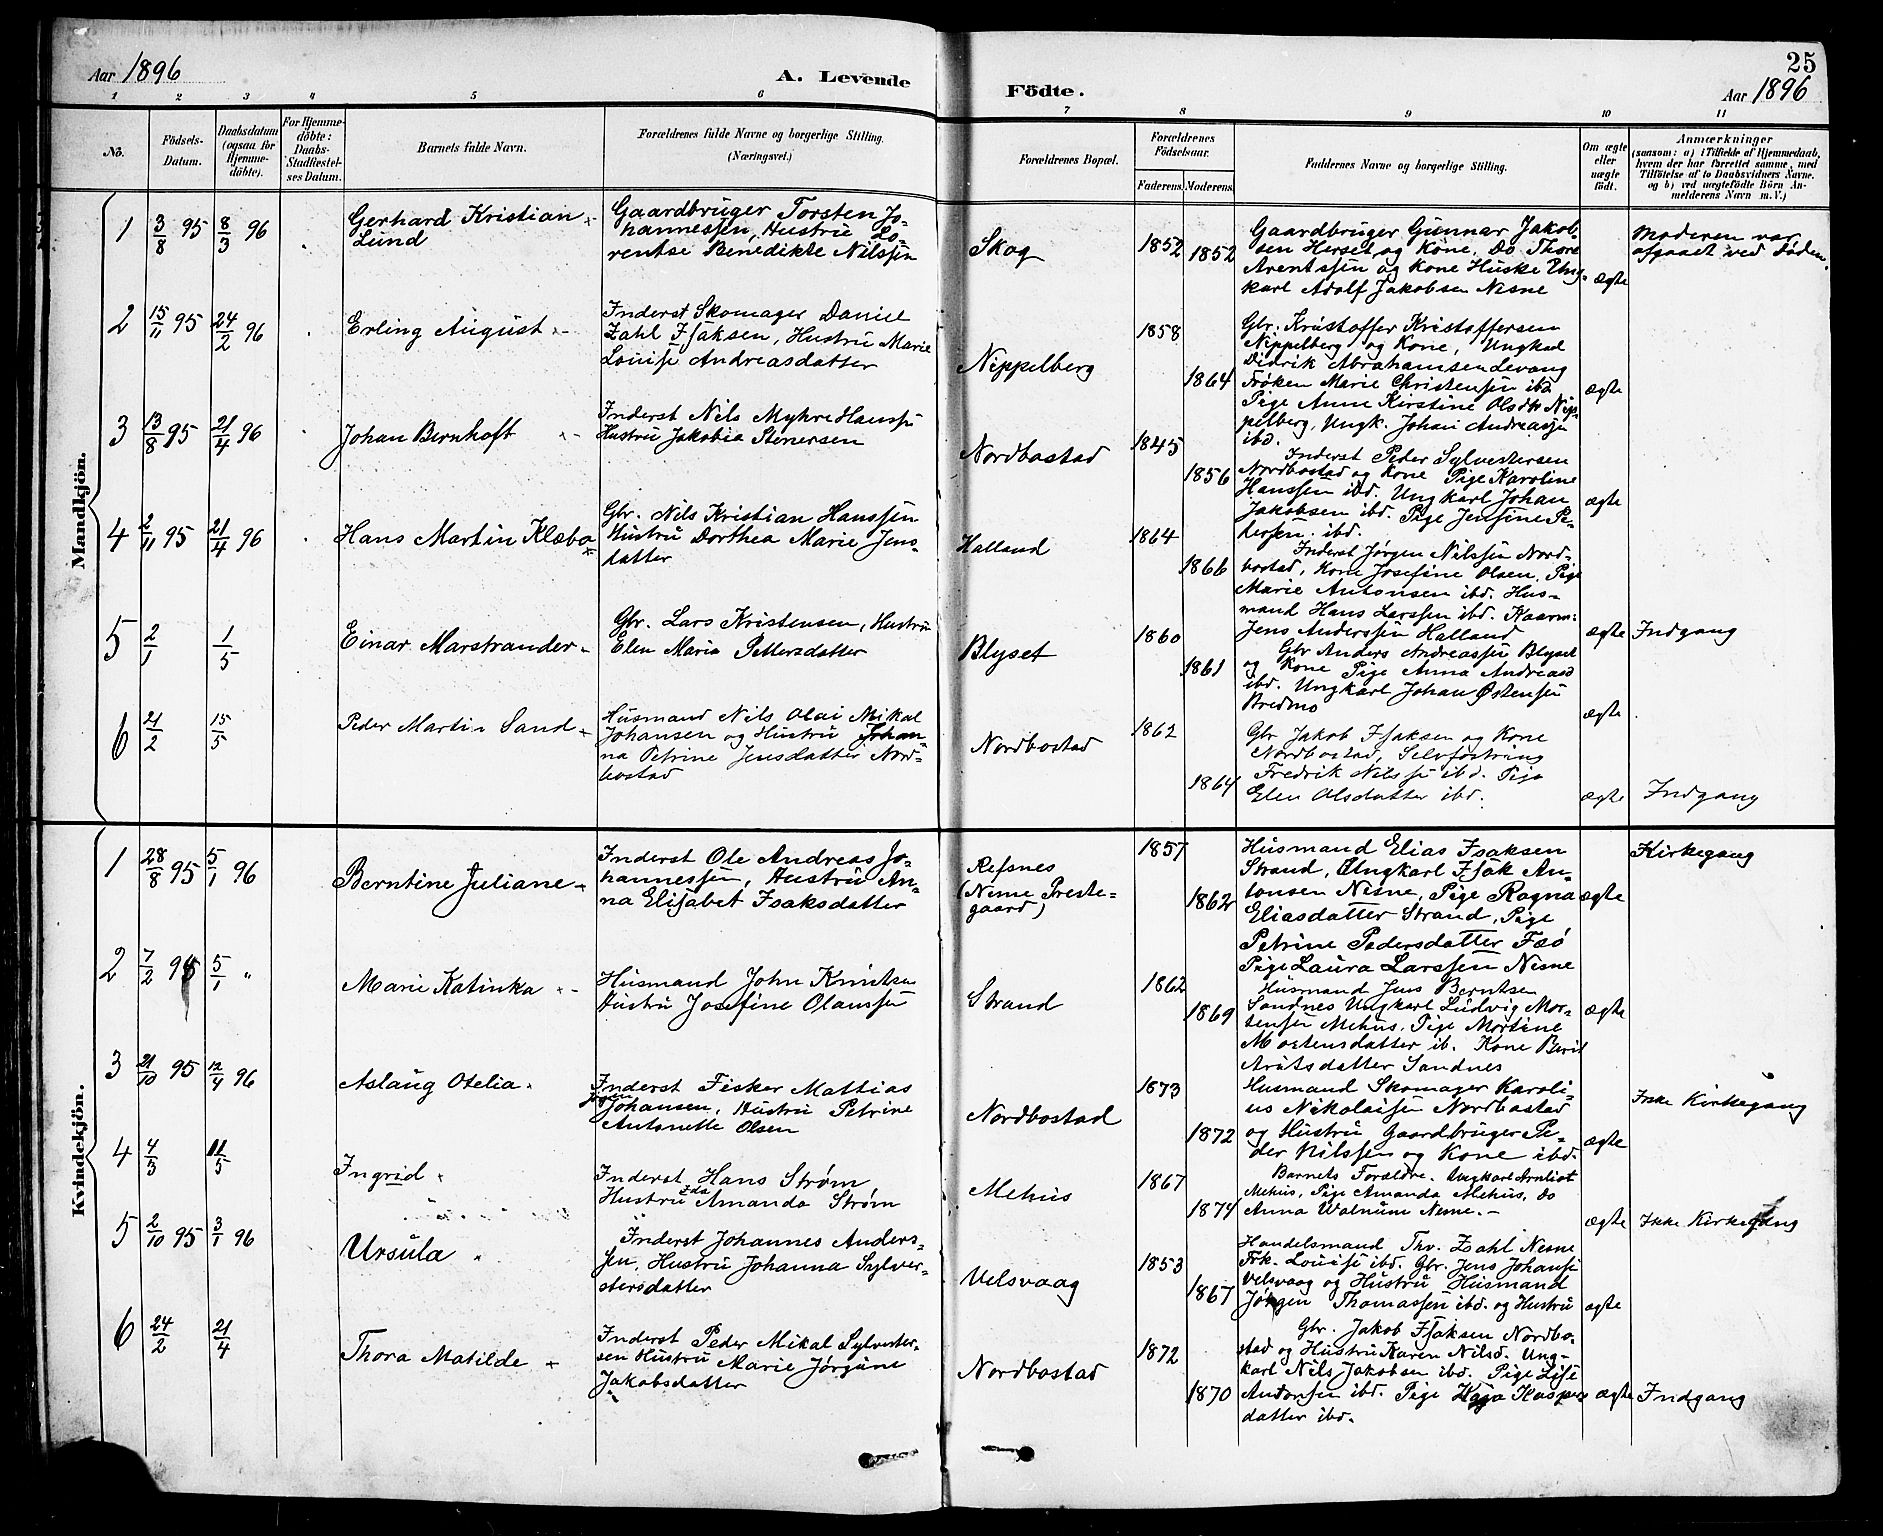 Aar 1896
A. Levende
Födte.
25
Aar 1896
1 2 3 4 5 6 7 8 9 10 11
No.
Födsels-
Datum.
Daabsdatum
(ogsaa for
Hjemme-
döbte).
For Hjemme-
döbte:
Daabs-
Stadfæstel-
ses Datum.
Barnets fulde Navn.
Forældrenes fulde Navne og borgerlige Stilling.
(Næringsvei.)
Forældrenes Bopæl.
Forældrenes
Födselsaar.
Faderens. Moderens.
Faddernes Navne og borgerlige Stilling.
Om ægte
eller
uægte
født.
Anmærkninger
(saasom: a) i Tilfælde af Hjemmedaab,
hvem der har forrettet samme, med
Tilföielse af to Daabsvidners Navne.
og b) ved uægtefödte Börn An-
melderens Navn m. V.)
Mandkjön.
1 3/8 95 8/3 96
Gerhard Kristian
Lund
Gaardbruger Torsten Jo-
hannessen, Hustru Lo-
rentse Benedikte Nilssen
Skog
1852 1852
Gaardbruger Gunnar Jakob-
sen Herset og Kone, Do Thore
Arentssen og Kone Huske Ung-
karl Adolf Jakobsen Nesne
ægte
Moderen var
afgaaet ved døden.
2 15/11 95 24/2 96
Erling August
Inderst Skomager Daniel
Zahl Isaksen, Hustru Marie
Louise Andreasdatter
Nippelberg
1858
1864
Gbr. Kristoffer Kristoffersen
Nippelberg og Kone, Ungkarl
Didrik Abrahamsen Levang
Frøken Marie Christensen ibd
ægte
Pige Anne Kirstine Olsdtr Nip-
pelberg, Ungk. Johan Andreassen
ibd.
3 13/8 95 21/4 96
Johan Bernhoft
Inderst Nils Myhre Hanssen
Hustru Jakobia Stenersen
Nordbostad
1845
1856
Inderst Peder Sylvestersen
Nordbostad og Kone Pige Karoline
Hanssen ibd. Ungkarl Johan
Jakobsen ibd. Pige Jensine Pe-
dersen ibd.
ægte
4 2/11 95 21/4 96
Hans Martin Klæbo
Gbr. Nils Kristian Hanssen
Hustru Dorthea Marie Jens-
datter
Halland
1864
1866
Inderst Jørgen Nilssen Nord-
bostad, Kone Josefine Olsen, Pige
Marie Antonsen ibd. Hus-
mand Hans Larssen ibd. Kaarm:
Jens Anderssen Halland
ægte Indgang
5 2/1 1/5
Einar Marstrander
Gbr. Lars Kristensen, Hustru
Elen Maria Pettersdatter
Blyset
1860
1861
Gbr Anders Andreassen Blyset
og Kone Pige Anna Andreasd
ibd. Ungkarl Johan Østensen
Bredmo
ægte
6 21/2 15/5
Peder Martin Sand
Husmand Nils Olai Mikal
Johansen og Hustru Johan-
na Petrine Jensdatter Nord-
bostad
Nordbostad
1862
1864
Gbr Jakob Isaksen og Kone
Nordbostad, Selvfostring
Fredrik Nilssen ibd. Pige
Elen Olsdatter ibd.
ægte Indgang
Kvindekjön.
1 28/8 95 5/1 96
Berntine Juliane
Inderst Ole Andreas Jo-
hannessen, Hustru An-
na Elisabet Isaksdatter
Refsnes
(Nesne Preste-
gaard)
1857
1862
Husmand Elias Isaksen
Strand, Ungkarl Isak An-
tonsen Nesne, Pige Ragna
Eliasdatter Strand, Pige
Petrine Pedersdatter Fæø
ægte
Kirkegang
2 7/2 95 5/1 "
Marie Katinka
Husmand John Knutsen
Hustru Josefine Olaussen
Strand
1862
1869
Pige Laura Larssen Nesne
Husmand Jens Berntsen
Sandnes Ungkarl Ludvig Mor-
tensen Mehus, Pige Mortine
Mortensdatter ib. Kone Berit
Arntsdatter Sandnes
ægte
3 21/10 95 12/4 96
Aslaug Otelia
Inderst Fisker Mattias
Johansen, Hustru Petrine
Antonette Olsen
Nordbostad
1873
1872
Husmand Skomager Karoli-
us Nikolaisen Nordbostad
og Hustru Gaardbruger Pe-
der Nilssen og Kone ibd.
ægte
Ikke Kirkegang
4 4/3 11/5
Ingrid
Inderst Hans Strøm
Hustru Ida Amanda Strøm
Mehus
1867
1874
Barnets Forældre. Ungkarl Arnliot
Mehus, Pige Amanda Mehus, do
Anna Walnum Nesne.
ægte Ikke Kirkegang
5 2/10 95 3/1 96
Ursula
Inderst Johannes Anders-
sen, Hustru Johanna Sylve-
stersdatter
Velsvaag
1853
1867
Handelsmand Thv. Zahl Nesne
Frk. Louise ibd. Gbr. Jens Johansen
Velsvaag og Hustru Husmand
Jørgen Thomassen ibd. og Hustru
ægte
6 24/2 21/4
Thora Matilde
Inderst Peder Mikal Sylvester-
sen Hustru Marie Jørgine
Jakobsdatter
Nordbostad
1872
1870
Gbr. Jakob Isaksen Nordbo-
stad og Hustru Karen Nilsd. Ung-
karl Nils Jakobsen ibd. Pige Lise
Andorsen ibd. Pige Kaja Kaspers
datter ibd.
ægte Indgang